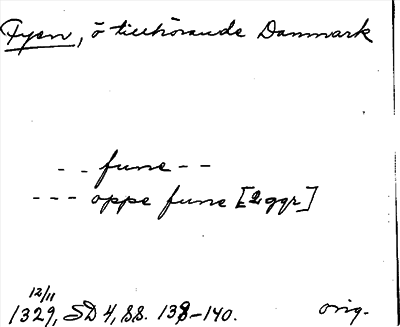 Fyen, ö tillhörande Danmark
- - fune - -
- - - oppe fune [2 ggr]
12/11
1329, SD 4, ss. 138-140. orig.